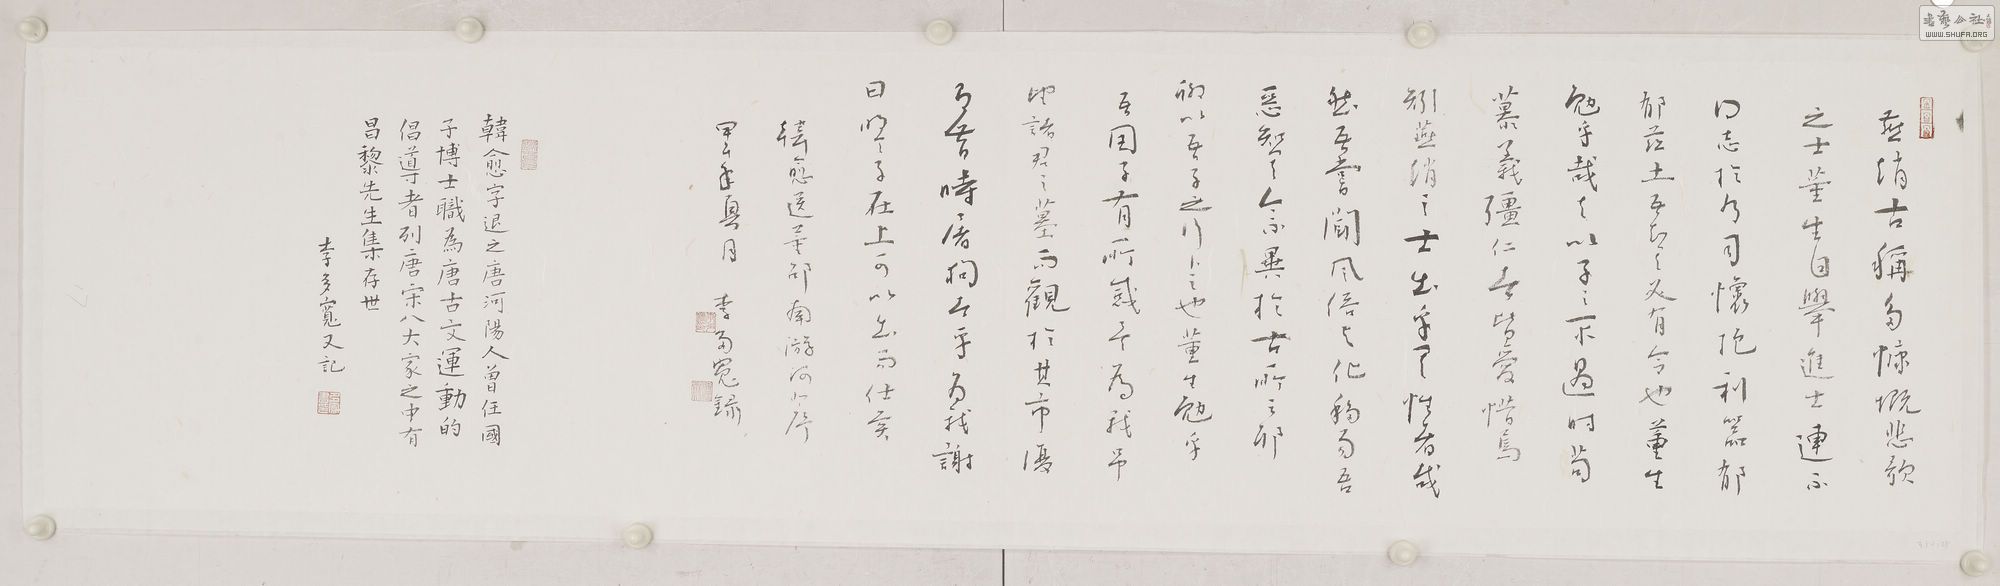 燕趙古稱多慷慨悲歌
之士董生舉進士連不
得志於有司懷抱利器郁
郁茲土吾知其必有合也董生
勉乎哉夫以子之不遇時苟
慕義彊仁者皆愛惜焉
矧燕趙之士出乎其性者哉
然吾嘗聞風俗與化移易吾
惡知其今不異於古所云邪
聊以吾子之行卜之也董生勉乎
吾因子有所感矣為我弔
望諸君之墓而觀於其市復
有昔時屠狗者乎為我謝
曰明天子在上可以出而仕矣
韓愈送董邵南游河北序
甲午年 月 李多寬錄
韓愈字退之唐河陽人曾任國
子博士職為唐古文運動的
倡導者列唐宋八大家之中有
昌黎先生集存世
李多寬又記
書藝公社
WWW.SHUFA.ORG